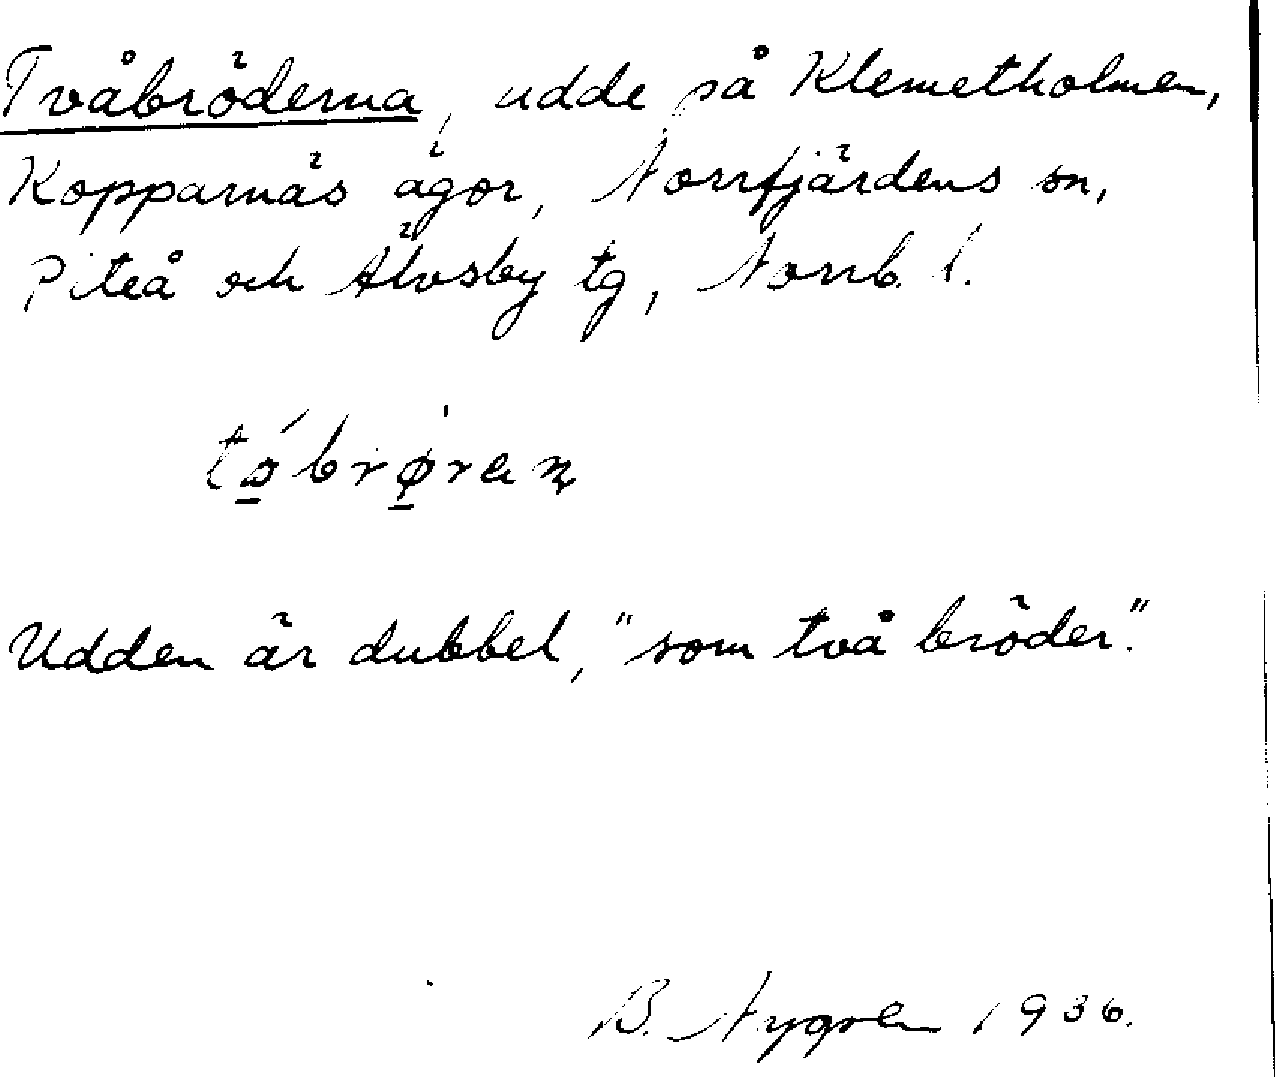 Tvåbröderna, udde på Klemetholmen,
Kopparnäs ägor, Norrfjärdens sn,
Piteå och Älvsby tg, Norrb. l.
Udden är dubbel, "som två bröder".
B. Nygren 1936.